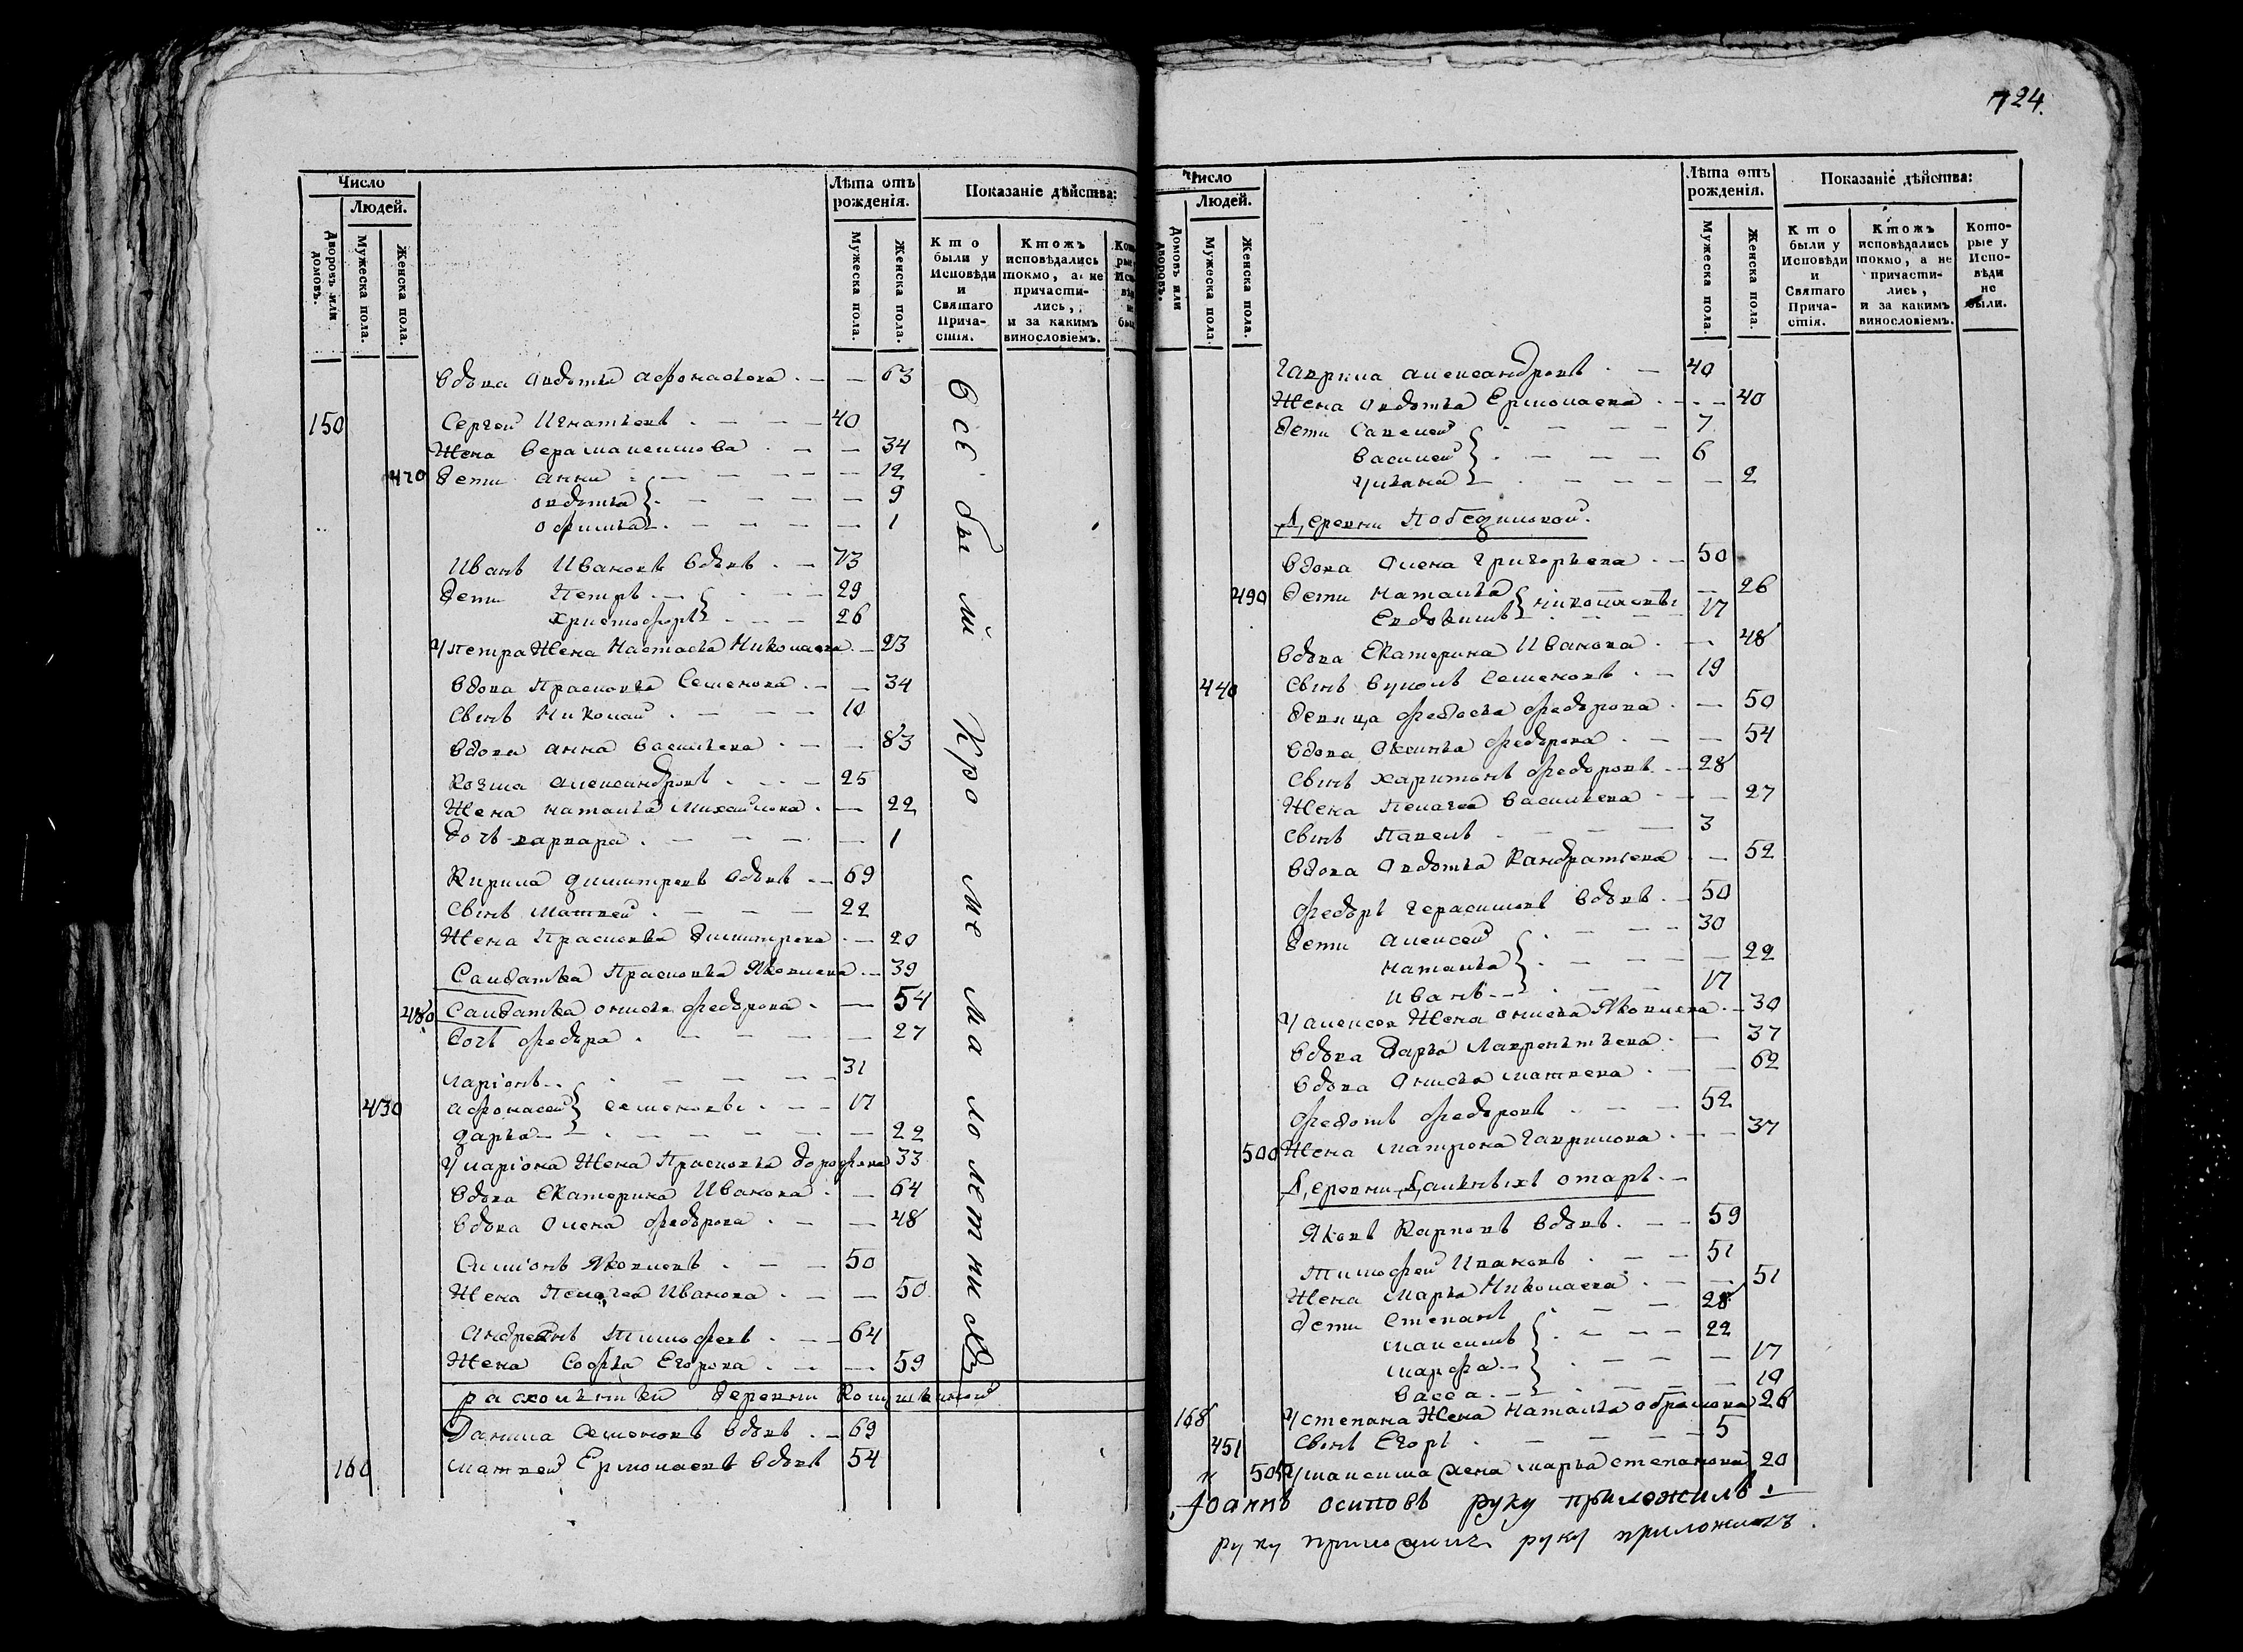 724.
Число
Людей.
Дворовъ или домовъ.
Мужеска пола.
Женска пола.
Лѣта отъ рожденія.
Мужеска пола.
Женска пола.
Показаніе дѣйства:
Кто были у Исповѣди и Святаго Причастія.
Ктожъ исповѣдались токмо, а не причастились, и за какимъ винословіемъ.
вдова авдотья афонасьева 63
150 Сергей Игнатьевъ 40
Жена вера максимова 34
470 дети анна 12
овдотья 9
офимья 1
Иванъ Ивановъ вдовъ 73
дети Петръ 29
Христофоръ 26
У петра Жена Настасья Николаева 23
вдова Прасковья Семенова 34
сынъ Николай 10
вдова анна васильева 83
Козма александровъ 25
Жена наталья михайлова 22
дочь варвара 1
Кирила димитревъ вдовъ 69
сынъ матвей 22
Жена Прасковья димитрева 20
Салдатка Прасковья Яковлева 39
480 Салдатка онисья федорова 54
дочь федора 27
ларіонъ 31
430 афонасей семеновы 17
дарья 22
У ларіона Жена Прасковья дорофева 33
вдова Екатерина Иванова 64
вдова олена федорова 48
Симіонъ Яковлевъ 50
Жена Пелагея Иванова 50
андреянъ Тимофеевъ 64
Жена Софья Егорова 59
раскольники деревни
Данила Семеновъ вдовъ 69
160 матвей Ермолаевъ вдовъ 54
всѣ были Кроме малолетних
Число
Людей.
Домовъ или дворовъ.
Мужеска пола.
Женска пола.
Лѣта отъ рожденія.
Мужеска пола.
Женска пола.
Показаніе дѣйства:
Кто были у Исповѣди и Святаго Причастія.
Ктожъ исповѣдались токмо, а не причастились, и за какимъ винословіемъ.
Которые у Исповѣди не были.
гаврила александровъ 40
Жена авдотья Ермолаева 40
дети Савелей 7
василей 6
ульяна 2
Деревни
вдова олена григорьева 50
490 дети наталья николаевы 26
Евдокимъ 17
вдова Екатерина Иванова 48
440 сынъ вуколъ семеновъ 19
девица федосья федорова 50
вдова оксинья федорова 54
сынъ харитонъ федоровъ 28
Жена Пелагея васильева 27
сынъ Павелъ 3
вдова авдотья Кандратьева 52
федоръ герасимовъ вдовъ 50
дети алексей 30
наталья 22
иванъ 17
У алексея Жена онисья Яковлева 30
вдова дарья лаврентьева 37
вдова анисья матвева 62
федотъ федоровъ 52
500 Жена матрона гаврилова 37
Деревни
Яковъ Карповъ вдовъ 59
Тимофей Ивановъ 51
Жена марья Николаева 51
дети Степанъ 28
максимъ 22
марфа 17
васса 10
168 У степана Жена наталья абрамова 26
451 сынъ Егоръ 5
и 505 У максима жена марья степанова 20
Іоаннъ осиповъ руку приложилъ
руку приложилъ руку приложилъ.